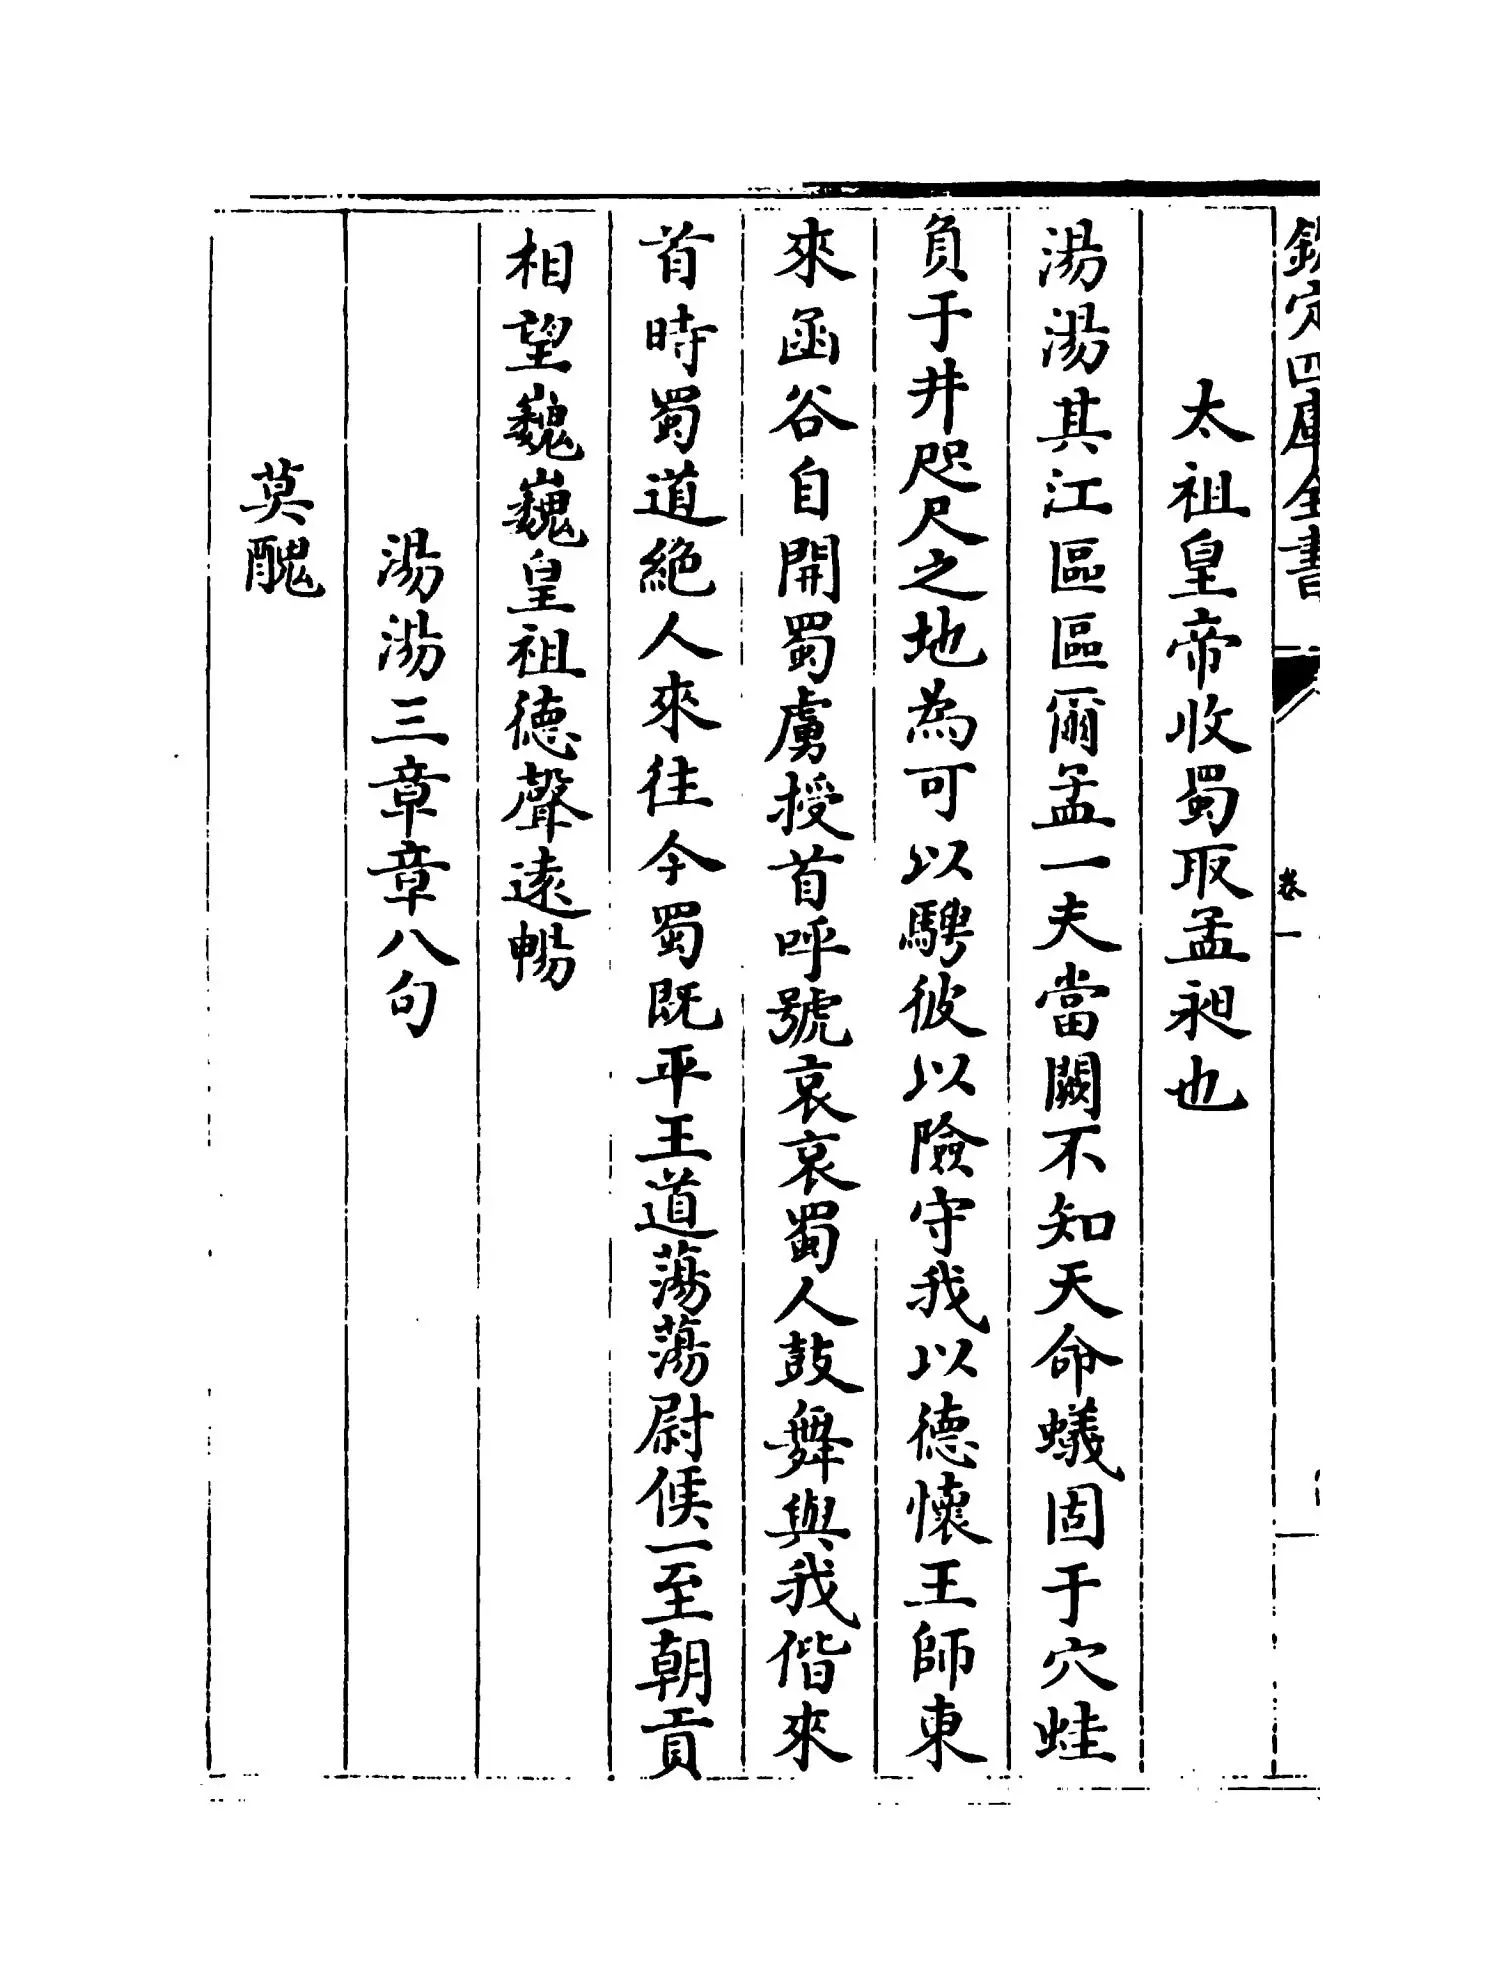 欽定四庫全書
卷一
太祖皇帝收蜀取孟昶也
湯湯其江區區爾孟一夫當闕不知天命蟻固于穴蛙
負于井咫尺之地為可以騁彼以險守我以德懷王師東
來函谷自開蜀虜授首呼號哀哀蜀人鼓舞與我偕來
首時蜀道絶人來往今蜀既平王道蕩蕩尉侯一至朝貢
相望巍巍皇祖德聲遠暢
湯湯三章章八句
莫醜